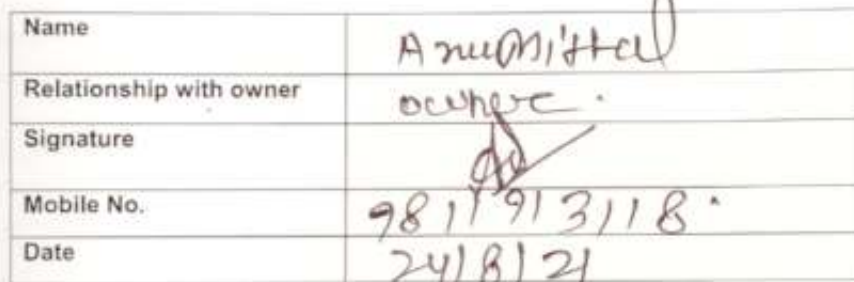 Name Anu Mittal
Relationship with owner owner.
Signature
Mobile No. 9811913118.
Date 24/8/21